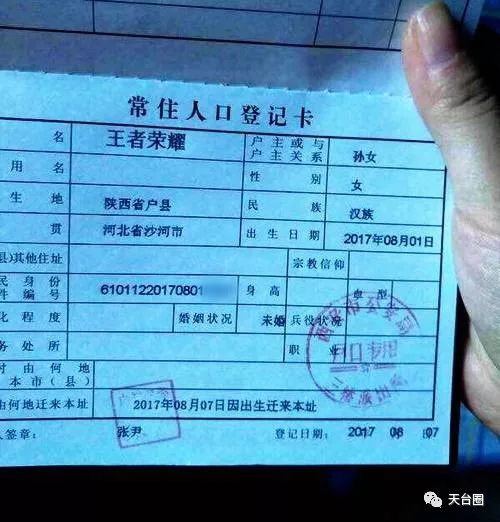 常住人口登记卡
名 王者荣耀 户主或与户主关系 孙女
用名 性别 女
生地 陕西省户县 民族 汉族
贯 河北省沙河市 出生日期 2017年08月01日
县)其他住址 宗教信仰
民身份件编号 61011220170801 身高 血型
化程度 婚姻状况 未婚 兵役状况
务处所 职业
时由何地本市(县)
由何地迁来本址 2017年08月07日因出生迁来本址
人签章: 张尹 登记日期: 2017 08 07
天台圈